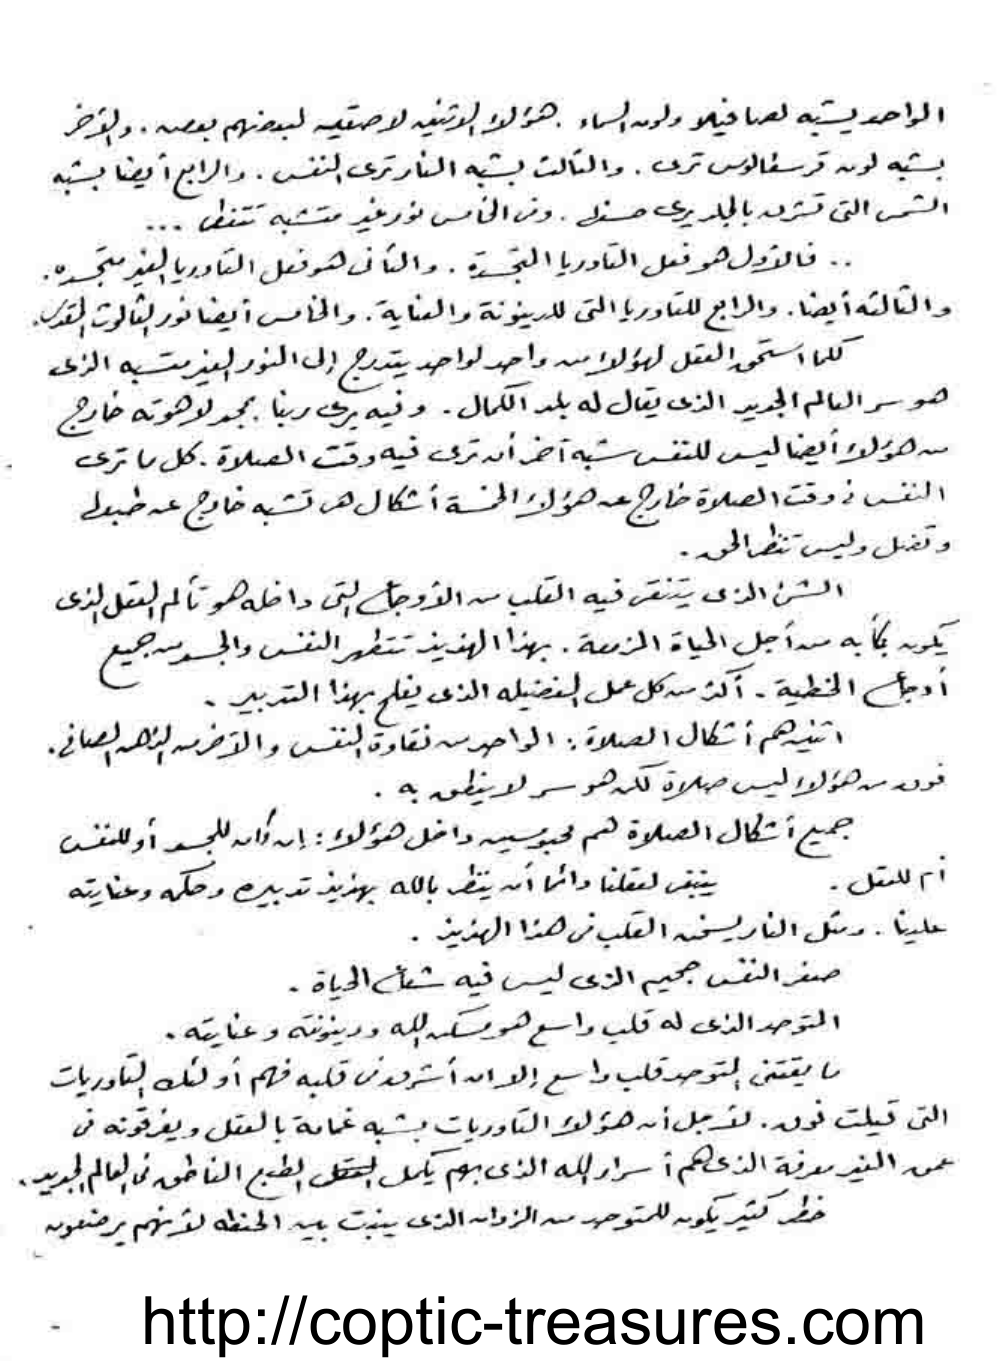 الواحد يشبه لصافيلا ولون السماء . هؤلاء الاثنين لاصقين لبعضهم بعض . والآخر
يشبه لون قرسطالوس ترى . والثالث يشبه النار ترى النفس . والرابع أيضا يشبه
الشمس التى تشرق بالجلد يرى منه . وفى الخامس نور غير متشبه تنظر ...
.. فالأول هو فعل التاوريا المتجسدة . والثانى هو فعل التاوريا الغير متجسده .
والثالثه أيضا . والرابع للتاوريا التى للدينونة والعناية . والخامس أيضا نور الثالوث المقدس .
كلما استحق العقل لهؤلاء من واحد لواحد يتدرج إلى النور الغير متشبه الذى
هو سر العالم الجديد الذى يقال له بلد الكمال . وفيه يرى ربنا بمجد لاهوته خارج
من هؤلاء أيضا ليس للنفس شبه آخر أن ترى فيه وقت الصلاة . كل ما ترى
النفس فى وقت الصلاة خارج عن هؤلاء الخمسة أشكال هى تشبه خارج عن طبعها
وتضل وليس تنظر الحق .
الشئ الذى يتنقى فيه القلب من الأوجاع التى داخله هو تألم العقل الذى
يكون بكأبه من أجل الحياة المزمعة . بهذا الهذيذ تتطهر النفس والجسد من جميع
أوجاع الخطية . أكثر من كل عمل الفضيله الذى يفلح بهذا التدبير .
اثنين هم أشكال الصلاة : الواحد من نقاوة النفس والآخر من الذهن الصافى .
فوق من هؤلاء ليس صلاة لكن هو سر لا ينطق به .
جميع أشكال الصلاة هم محبوسين داخل هؤلاء : إن كان للجسد أو للنفس
أم للعقل . ينبغى لعقلنا دائما أن ينظر بالله بهذيذ تدبيره وحكمه وعنايته
علينا . ومثل النار يسخن القلب فى هذا الهذيذ .
صغر النفس جحيم الذى ليس فيه شعاع الحياة .
المتوحد الذى له قلب واسع هو مسكن الله ودينونته وعنايته .
ما يقتنى المتوحد قلب واسع إلا ان أشرق فى قلبه فهم أولئك التاوريات
التى قيلت فوق . لأجل أن هؤلاء التاوريات يشبه غمامة بالعقل ويغرقونه فى
عمق الغير معرفة الذى هم أسرار الله الذى بهم يكمل الطبع الناطق فى العالم الجديد .
خطر كثير يكون للمتوحد من الزوان الذى ينبت بين الحنطه لأنهم يرضعون
http://coptic-treasures.com